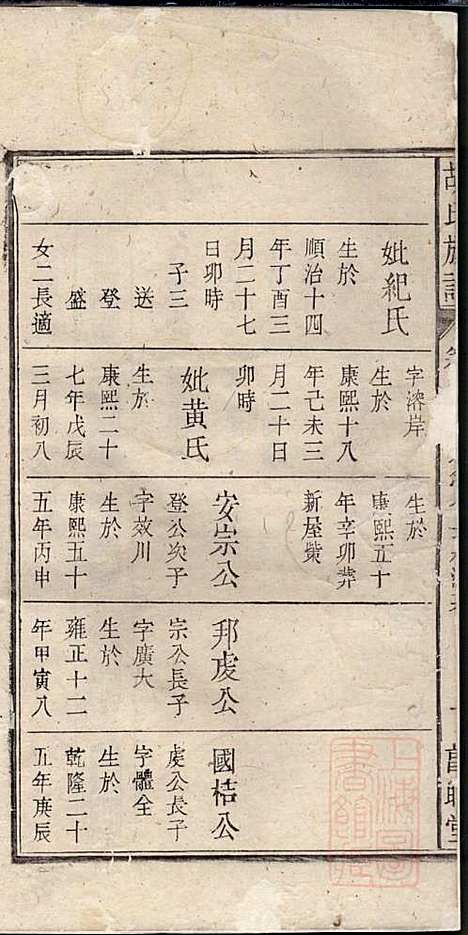 胡氏族譜
妣紀氏
生於
順治十四
年丁酉三
月二十七
日卯時
子三
送
登
盛
女二長適
字濬岸
生於
康熙十八
年己未三
月二十日
卯時
妣黃氏
生於
康熙二十
七年戊辰
三月初八
生於
康熙五十
年辛卯葬
新屋紫
安宗公
登公次子
字效川
生於
康熙五十
五年丙申
邦虔公
宗公長子
字廣大
生於
雍正十二
年甲寅八
國桔公
虔公長子
字體全
生於
乾隆二十
五年庚辰
上海圖
書館藏